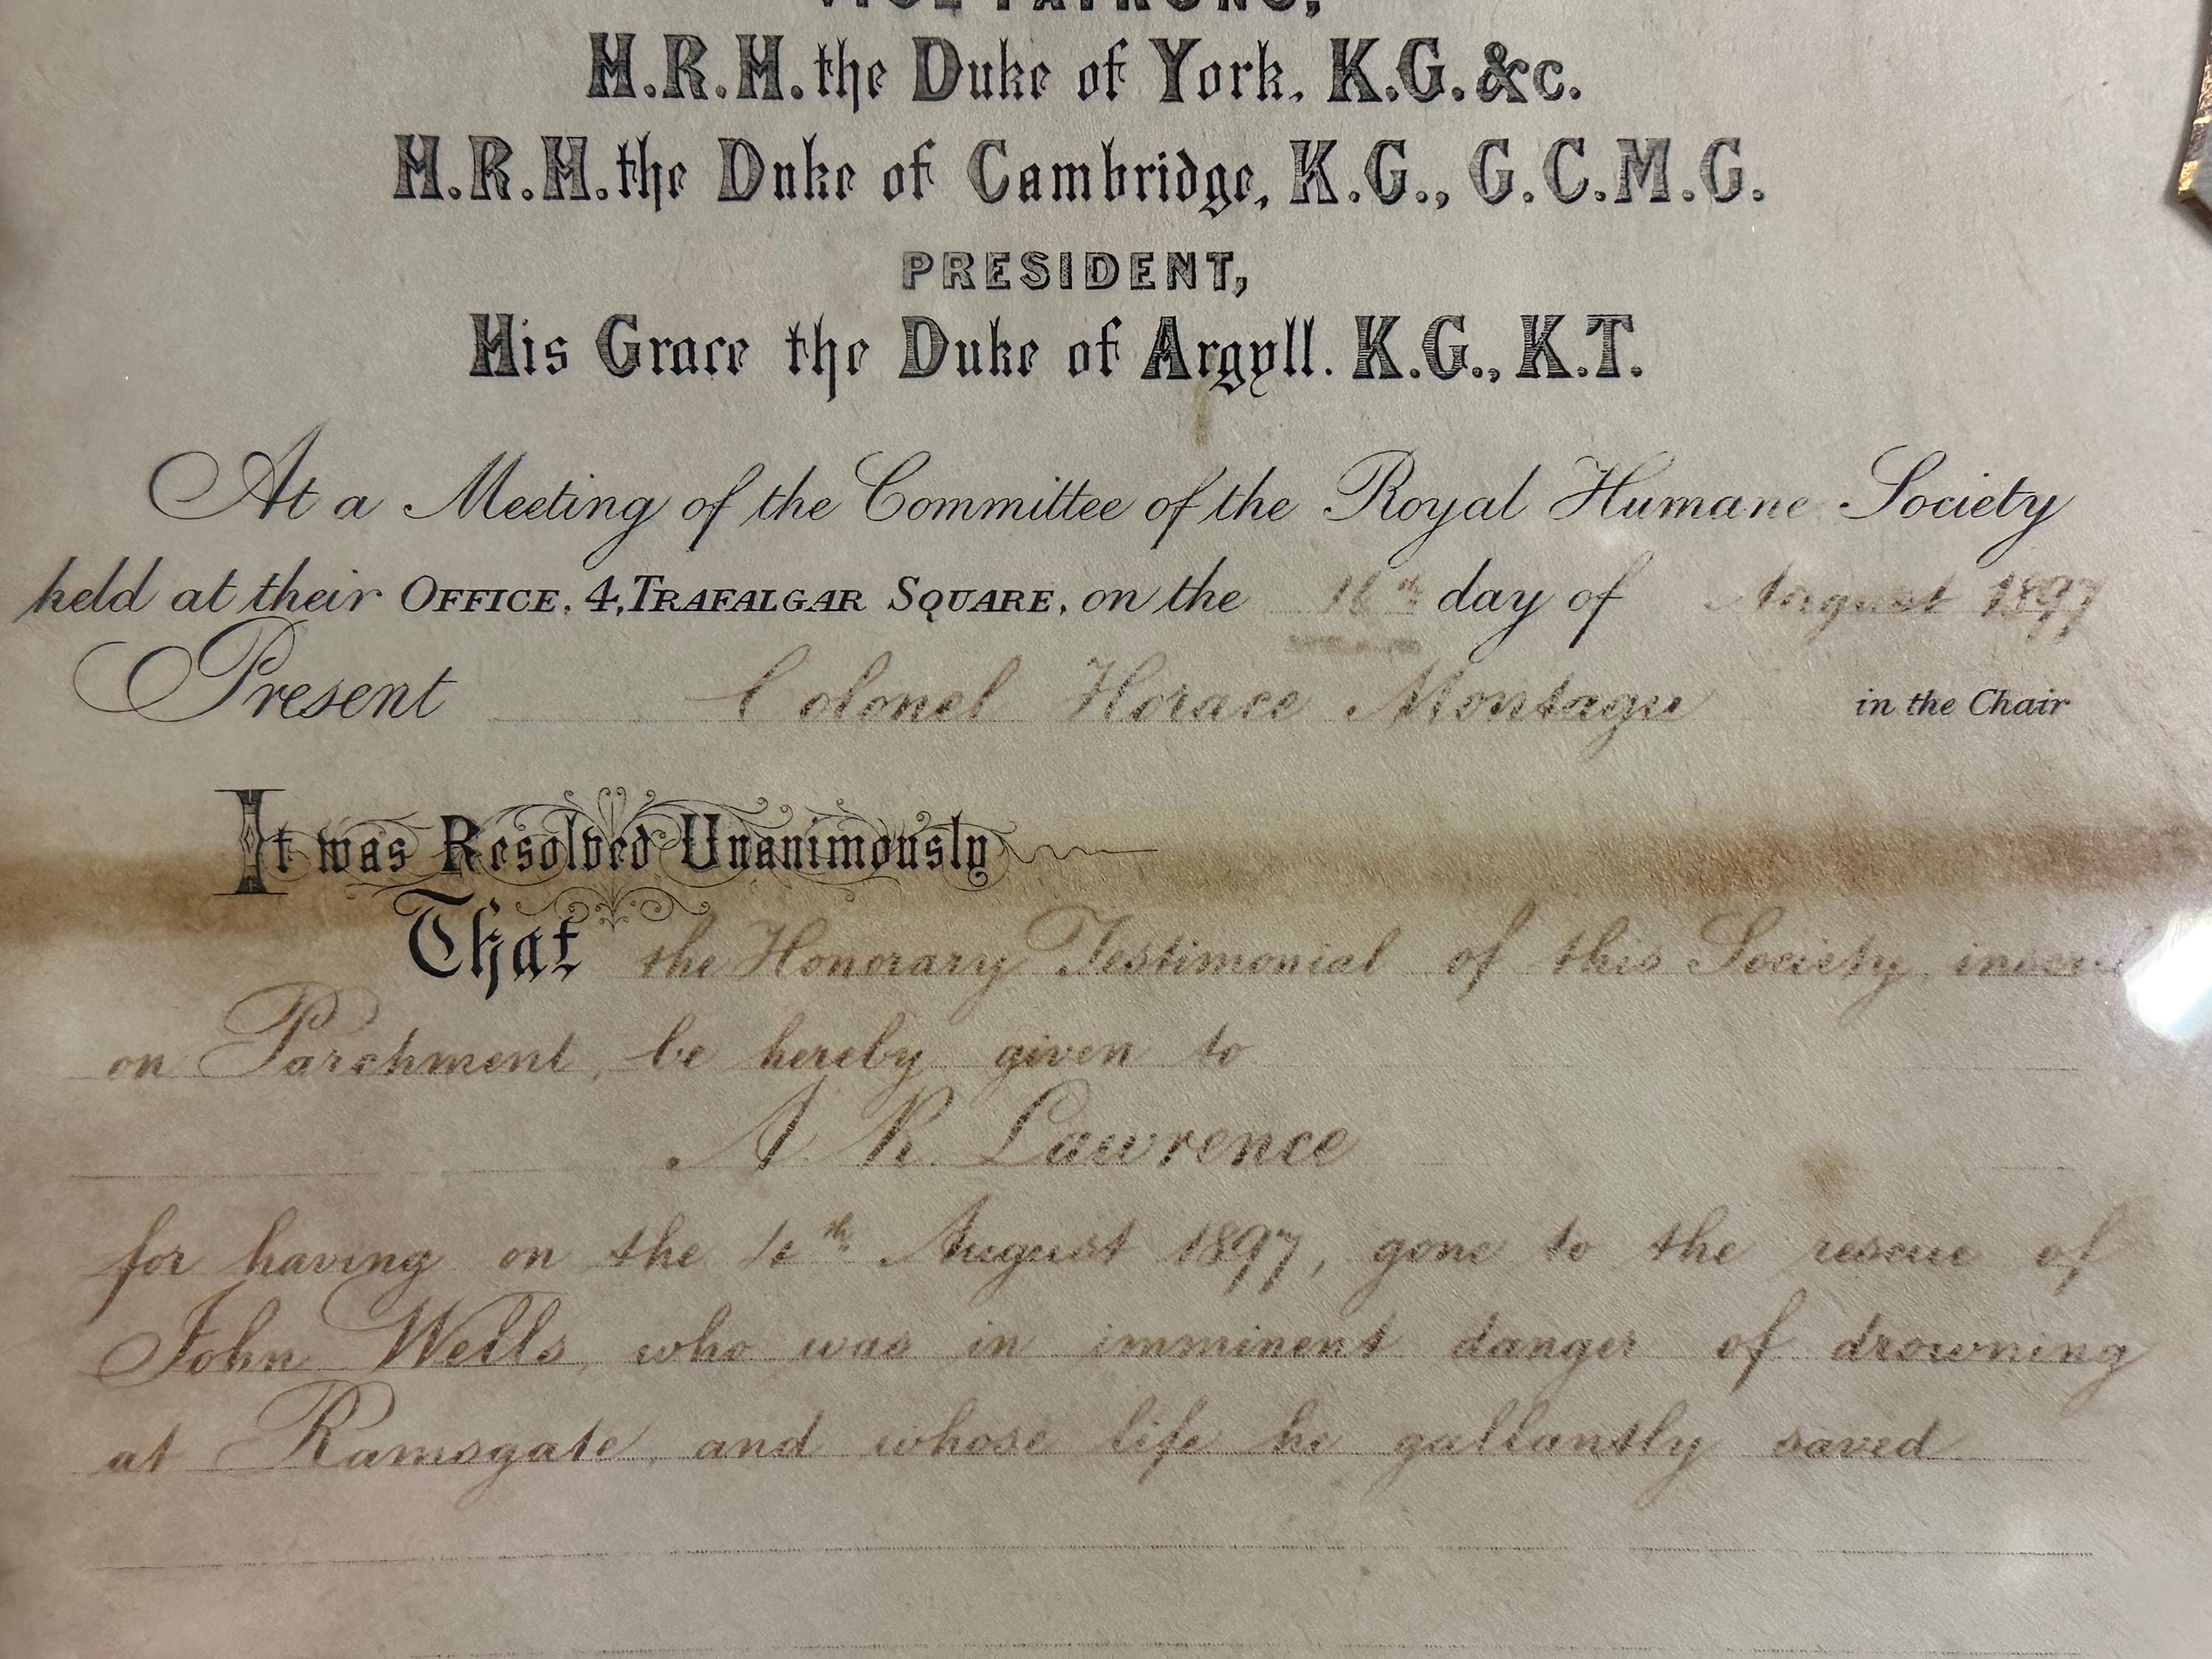 VICE PATRONS,
H.R.H. the Duke of York. K.G. &c.
H.R.H. the Duke of Cambridge, K.G., G.C.M.G.
PRESIDENT,
His Grace the Duke of Argyll. K.G., K.T.
At a Meeting of the Committee of the Royal Humane Society
held at their OFFICE. 4, TRAFALGAR SQUARE, on the 16th day of August 1897
Present Colonel Horace Montagu in the Chair
It was Resolved Unanimously
That the Honorary Testimonial of this Society,
on Parchment, be hereby given to
A. R. Lawrence
for having on the 4th August 1897, gone to the rescue of
John Wells, who was in imminent danger of drowning
at Ramsgate, and whose life he gallantly saved